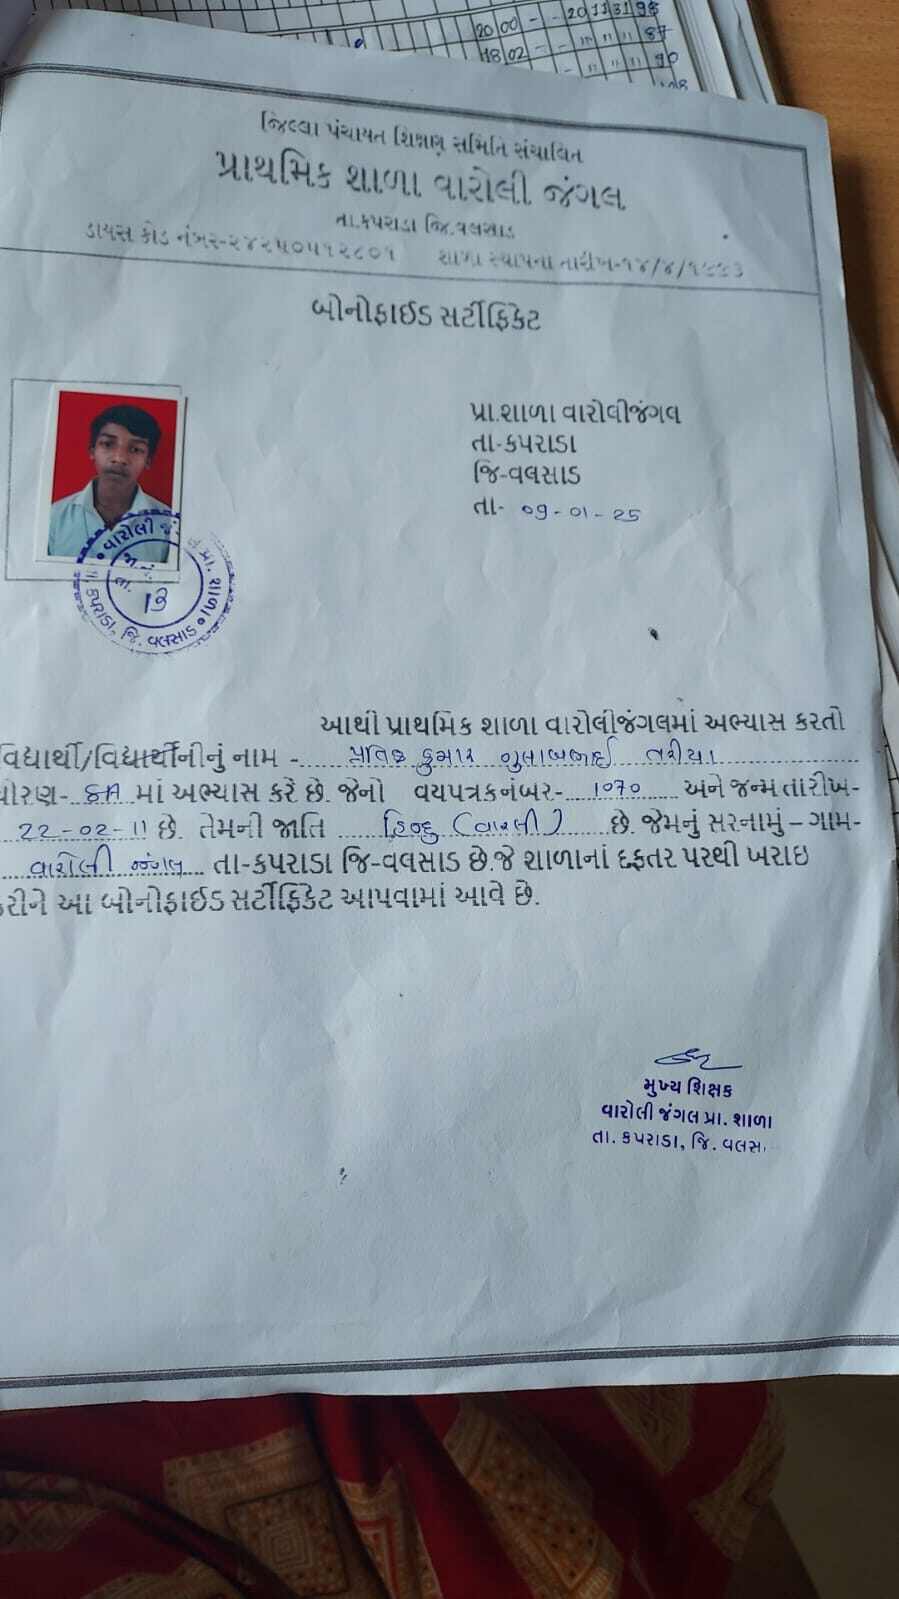 20 00 - - 20 11 31 98
18 02 - - " " " 87
- " " " 90
જિલ્લા પંચાયત શિક્ષણ સમિતિ સંચાલિત
પ્રાથમિક શાળા વારોલી જંગલ
તા.કપરાડા જિ.વલસાડ
ડાયસ કોડ નંબર-૨૪૨૫૦૫૧૨૮૦૧ શાળા સ્થાપના તારીખ-૧૪/૪/૧૯૬૩
બોનોફાઈડ સર્ટીફિકેટ
પ્રા.શાળા વારોલીજંગલ
તા-કપરાડા
જિ-વલસાડ
તા- 09-01-25
વારોલી જં લ પ્રા. શાળા
જા.નં.
તા.
13
તા. કપરાડા, જિ. વલસાડ
આથી પ્રાથમિક શાળા વારોલીજંગલમાં અભ્યાસ કરતો
વિદ્યાર્થી/વિદ્યાર્થીનીનું નામ - કુમાર ગુલાબભાઈ
ધોરણ- માં અભ્યાસ કરે છે. જેનો વયપત્રકનંબર- 1070 અને જન્મ તારીખ-
22-02-11 છે. તેમની જાતિ હિન્દુ (વારલી) છે. જેમનું સરનામું – ગામ-
વારોલી જંગલ તા-કપરાડા જિ-વલસાડ છે.જે શાળાનાં દફતર પરથી ખરાઇ
કરીને આ બોનોફાઈડ સર્ટીફિકેટ આપવામાં આવે છે.
મુખ્ય શિક્ષક
વારોલી જંગલ પ્રા. શાળા
તા. કપરાડા, જિ. વલસ